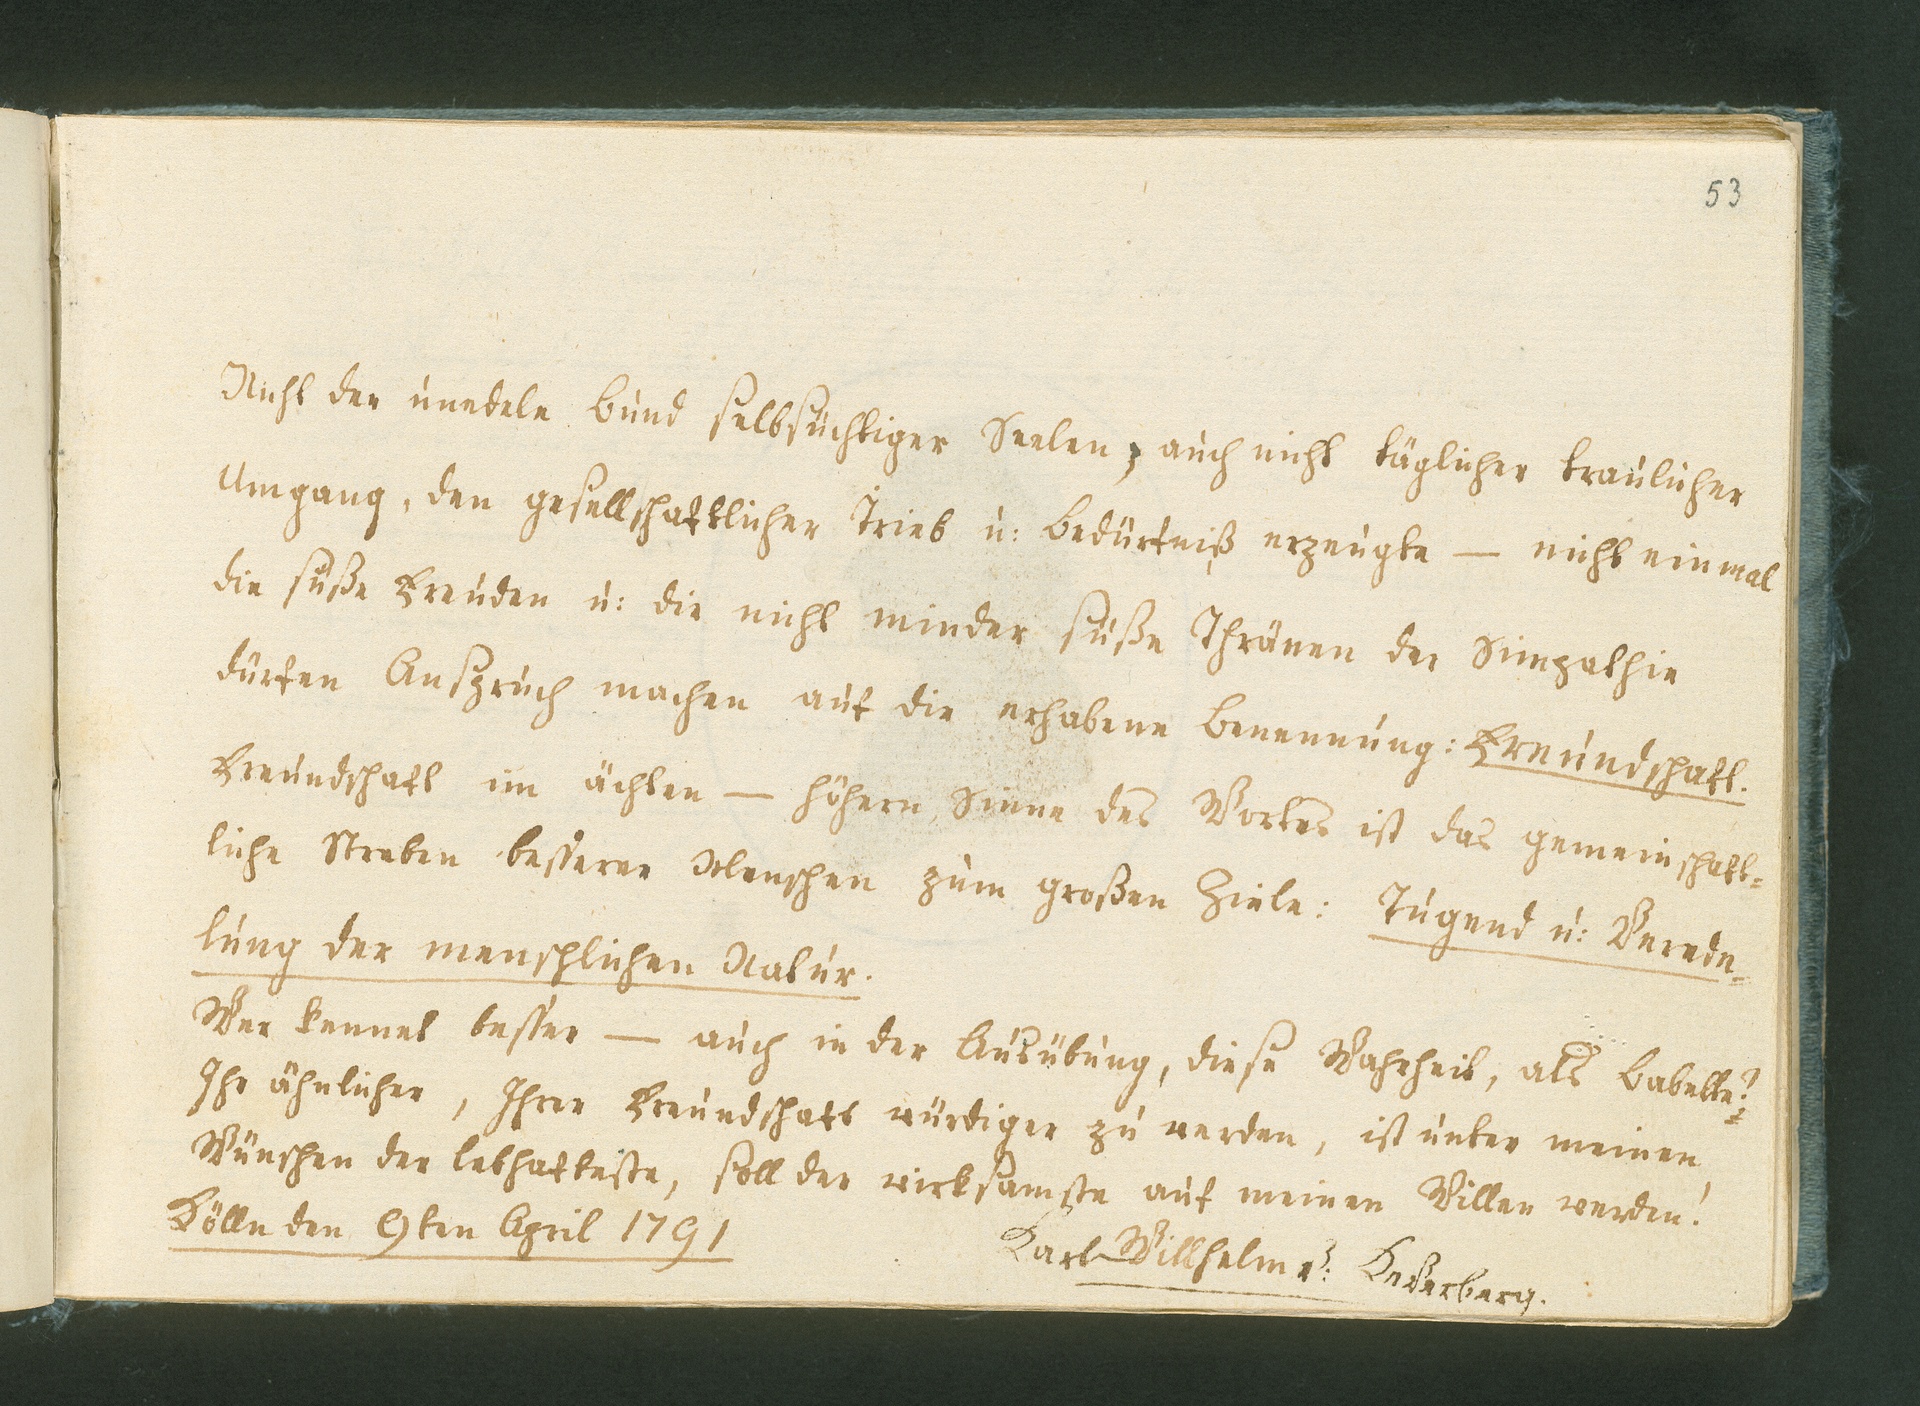 53
Nicht der unedele Bund selbsüchtiger Seelen, auch nicht täglicher traulicher
Umgang, den gesellschaftlicher Trieb u: Bedürfniß erzeugte — nicht einmal
die süße Freuden u: die nicht minder süße Thränen der Simpathie
dürfen Anspruch machen auf die erhabene Benennung: Freundschaft.
Freundschaft im ächten — höhern Sinne des Wortes ist das gemeinschaft=
liche Streben besserer Menschen zum großen Ziele: Tugend u: Verede=
lung der menschlichen Natur.
Wer kennet besser — auch in der Ausübung, diese Wahrheit, als Babette?
Ihr ähnlicher, Ihrer Freundschaft würdiger zu werden, ist unter meinen
Wünschen der lebhafteste, soll der wirksamste auf meinen Willen werden!
Kölln den 9ten April 1791
Karl Willhelm v: Keverberg.